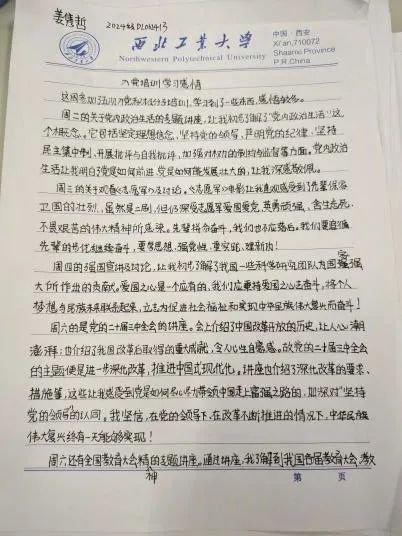 姜隽哲
2024級DL0N413
西北工业大学
Northwestern Polytechnical University
中国·西安
Xi'an,710072
Shaanxi Province
P.R.China
入党培训学习感悟
这周参加了入党积极分子培训,学习到了一些东西,感悟较多。
周二的关于党内政治生活的专题讲座,让我初步了解了"党内政治生活"这
个概念。它包括坚定理想信念,坚持党的领导、严明党的纪律、坚持
民主集中制、开展批评与自我批评,加强对权力的制约与监督等方面。党内政治
生活让我明白了党是如何前进,党是如何能发展壮大的,让我深感敬佩。
周三的关于观看《志愿军》及讨论。《志愿军》电影让我直观感受到了先辈保家
卫国的壮烈,虽然是二刷,但仍深受志愿军爱国爱党,英勇顽强、舍生忘死,
不畏艰苦的伟大精神所感染。先辈拼命奋斗,我们也不应落后。我们要追随
先辈的步伐起续奋斗,重学思想,强党性,重实践,建新功!
周四的强国宣讲及讨论,让我初步了解了我国一些科学研究团队为国家强
大所作出的贡献。爱国之心是一个应有的,我们应秉持爱国之心去奋斗,将个人
梦想与民族未来联系起来,立志为促进社会福祉和实现中华民族伟大复兴而奋斗!
周六的是党的二十届三中全会的讲座。会上介绍了中国改革开放的历史,让人心潮
澎湃;也介绍了我国改革后取得的重大成就,令人心生自豪感。故党的二十届三中全会
的主题便是进一步深化改革,推进中国式现代化。讲座也介绍了深化改革的要求、
措施等,这些让我感受到党是如何尽心尽力带领中国走上富强之路的,加深对"坚持
党的领导"的认同。我坚信,在党的领导下,在改革不断推进的情况下,中华民族
伟大复兴终有一天能够实现!
周六还有全国教育大会精神的专题讲座。通过讲座,我了解到我国首届教育大会、教
第 页